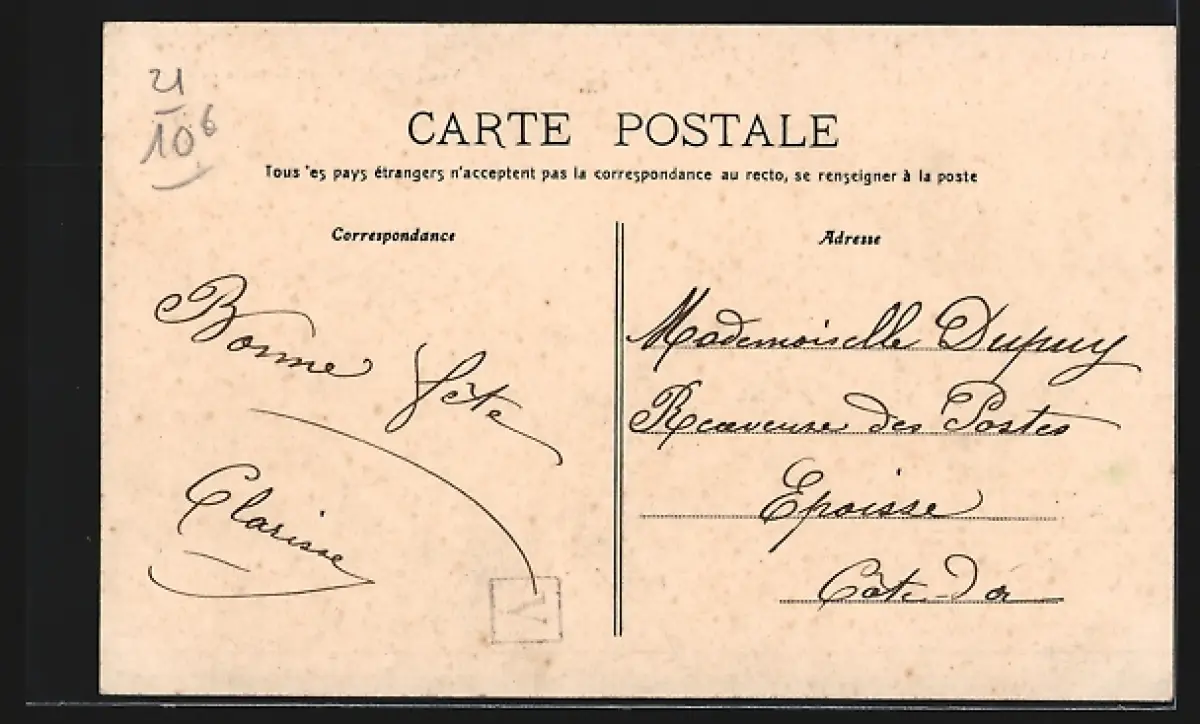 21
10 6
CARTE POSTALE
Tous 'es pays étrangers n'acceptent pas la correspondance au recto, se renseigner à la poste
Correspondance
Bonne fête
Clarisse
V
Adresse
Mademoiselle Dupuy
Receveuse des Postes
Epoisse
Côte-d'or